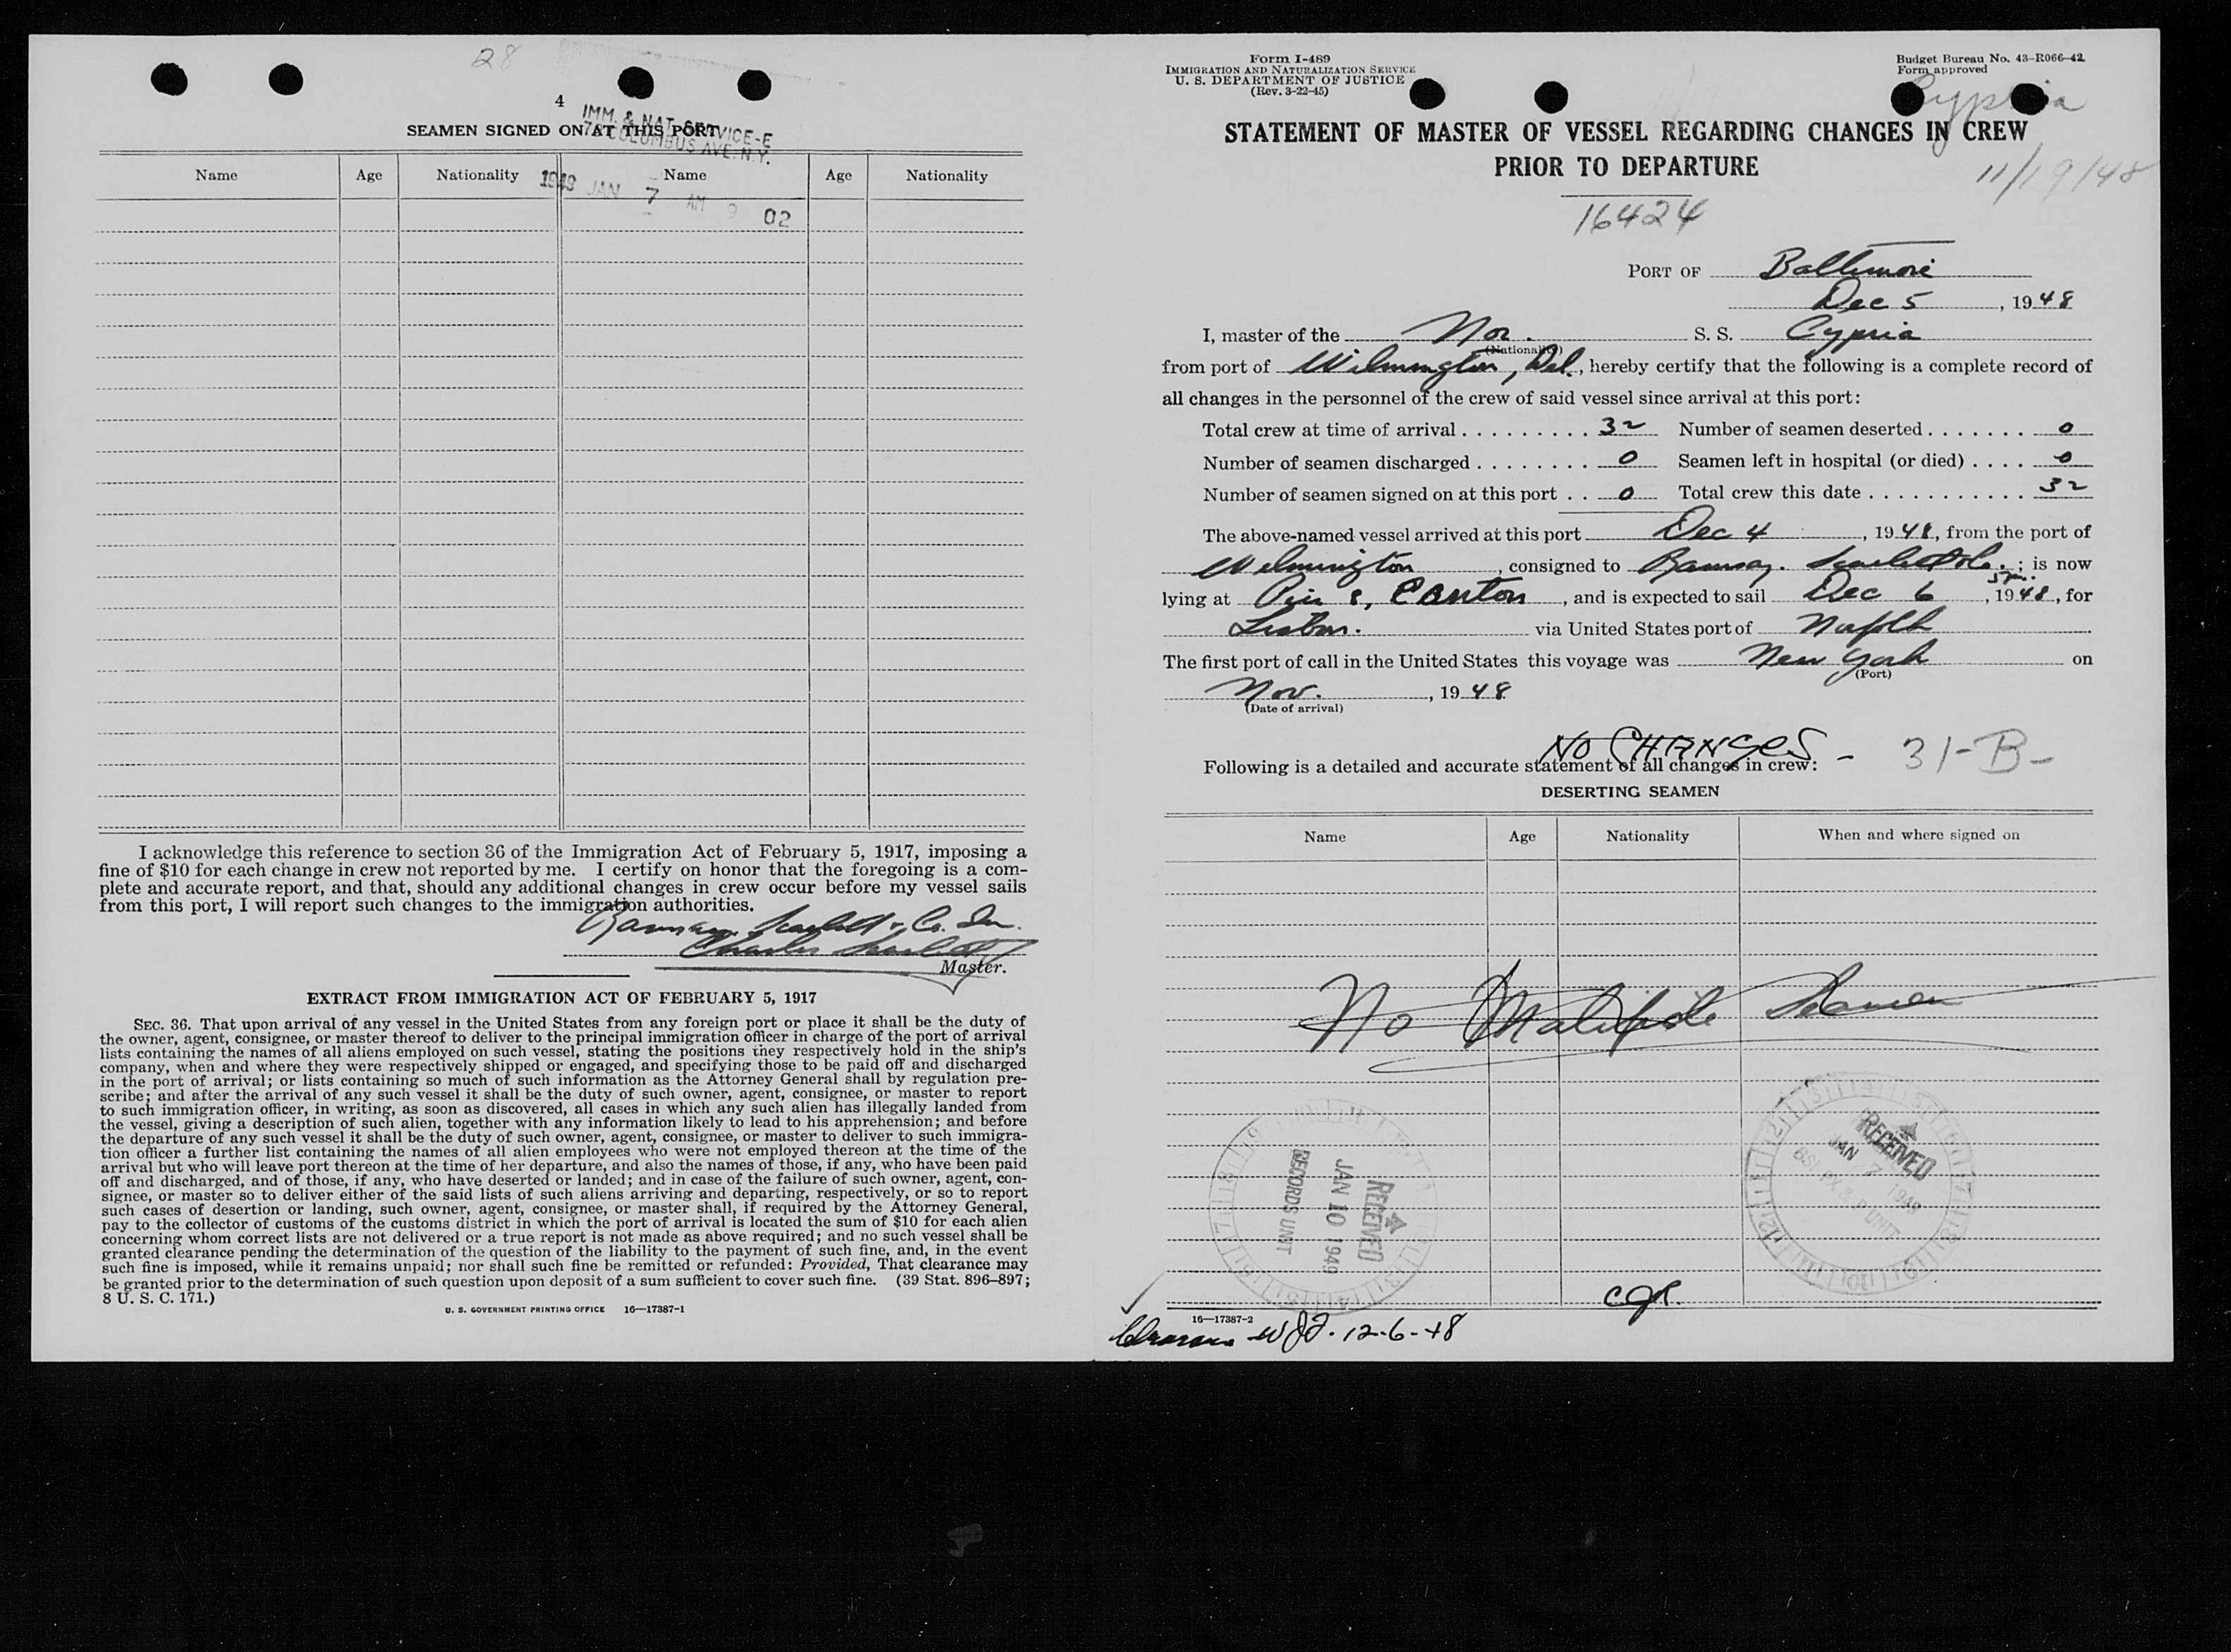 28
4
IMM. & NAT. SERVICE-E
70 COLUMBUS AVE. N.Y.
SEAMEN SIGNED ON AT THIS PORT
Name Age Nationality Name Age Nationality
1949 JAN 7 AM 9 02
I acknowledge this reference to section 36 of the Immigration Act of February 5, 1917, imposing a
fine of $10 for each change in crew not reported by me. I certify on honor that the foregoing is a com-
plete and accurate report, and that, should any additional changes in crew occur before my vessel sails
from this port, I will report such changes to the immigration authorities.
Ramsay, Scarlett & Co. Inc.
Charles Scarlett
Master.
EXTRACT FROM IMMIGRATION ACT OF FEBRUARY 5, 1917
SEC. 36. That upon arrival of any vessel in the United States from any foreign port or place it shall be the duty of
the owner, agent, consignee, or master thereof to deliver to the principal immigration officer in charge of the port of arrival
lists containing the names of all aliens employed on such vessel, stating the positions they respectively hold in the ship's
company, when and where they were respectively shipped or engaged, and specifying those to be paid off and discharged
in the port of arrival; or lists containing so much of such information as the Attorney General shall by regulation pre-
scribe; and after the arrival of any such vessel it shall be the duty of such owner, agent, consignee, or master to report
to such immigration officer, in writing, as soon as discovered, all cases in which any such alien has illegally landed from
the vessel, giving a description of such alien, together with any information likely to lead to his apprehension; and before
the departure of any such vessel it shall be the duty of such owner, agent, consignee, or master to deliver to such immigra-
tion officer a further list containing the names of all alien employees who were not employed thereon at the time of the
arrival but who will leave port thereon at the time of her departure, and also the names of those, if any, who have been paid
off and discharged, and of those, if any, who have deserted or landed; and in case of the failure of such owner, agent, con-
signee, or master so to deliver either of the said lists of such aliens arriving and departing, respectively, or so to report
such cases of desertion or landing, such owner, agent, consignee, or master shall, if required by the Attorney General,
pay to the collector of customs of the customs district in which the port of arrival is located the sum of $10 for each alien
concerning whom correct lists are not delivered or a true report is not made as above required; and no such vessel shall be
granted clearance pending the determination of the question of the liability to the payment of such fine, and, in the event
such fine is imposed, while it remains unpaid; nor shall such fine be remitted or refunded: Provided, That clearance may
be granted prior to the determination of such question upon deposit of a sum sufficient to cover such fine. (39 Stat. 896–897;
8 U. S. C. 171.)
U. S. GOVERNMENT PRINTING OFFICE 16—17387-1
Form I-489
IMMIGRATION AND NATURALIZATION SERVICE
U. S. DEPARTMENT OF JUSTICE
(Rev. 3-22-45)
Budget Bureau No. 43–R066–42
Form approved
Cypria
STATEMENT OF MASTER OF VESSEL REGARDING CHANGES IN CREW
PRIOR TO DEPARTURE
11/19/48
16424
PORT OF Baltimore
Dec 5, 1948
I, master of the Nor. S. S. Cypria
(Nationality)
from port of Wilmington, Del., hereby certify that the following is a complete record of
all changes in the personnel of the crew of said vessel since arrival at this port:
Total crew at time of arrival . . . . . . . . . 32 Number of seamen deserted . . . . . . . 0
Number of seamen discharged . . . . . . . . 0 Seamen left in hospital (or died) . . . . 0
Number of seamen signed on at this port . . 0 Total crew this date . . . . . . . . . . . 32
The above-named vessel arrived at this port Dec 4, 1948, from the port of
Wilmington, consigned to Ramsay. Scarlett & Co.; is now
lying at Pier 8, Canton, and is expected to sail Dec 6 5 pm., 1948, for
Lisbon. via United States port of Norfolk
The first port of call in the United States this voyage was New York on
(Port)
Nov., 1948
(Date of arrival)
NO CHANGES - 31-B-
Following is a detailed and accurate statement of all changes in crew:
DESERTING SEAMEN
Name Age Nationality When and where signed on
No Malafide Seamen
RECEIVED
JAN 10 1949
RECORDS UNIT
RECEIVED
JAN 7 1949
BSI EX & P UNIT
16—17387-2
12-6-48